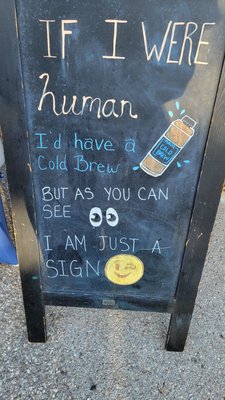 IF I WERE
human
I'd have a
Cold Brew
COLD
BREW
BUT AS YOU CAN
SEE
I AM JUST A
SIGN